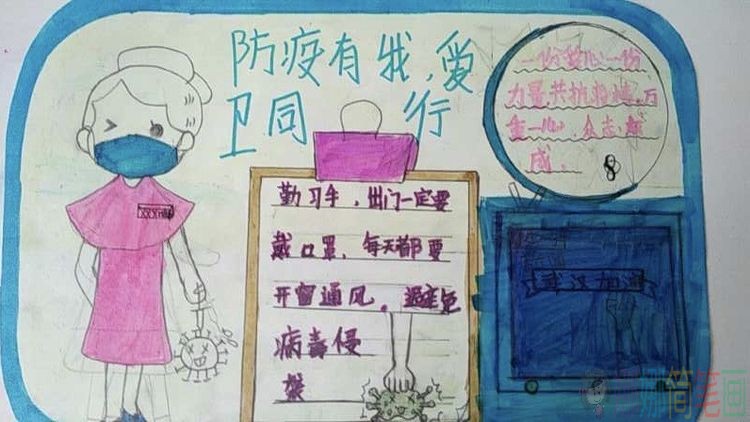 防疫有我，爱
卫同行
一份爱心一份
力量共抗疫情，万
一心，众志
成。
勤习手，出门一定要
戴口罩，每天都要
开留通风。
病毒侵
袭
武汉加油
简笔画